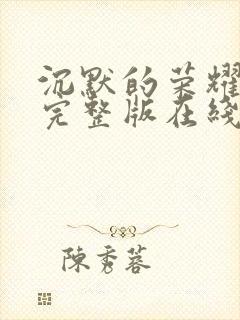 沉默的荣耀
完整版在线
陳秀蓉